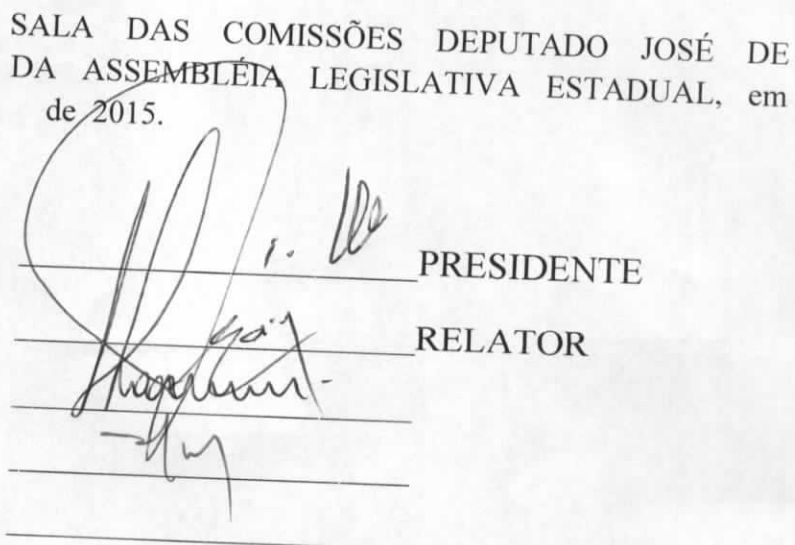 SALA DAS COMISSÕES DEPUTADO JOSÉ DE
DA ASSEMBLÉIA LEGISLATIVA ESTADUAL, em
de 2015.
PRESIDENTE
RELATOR